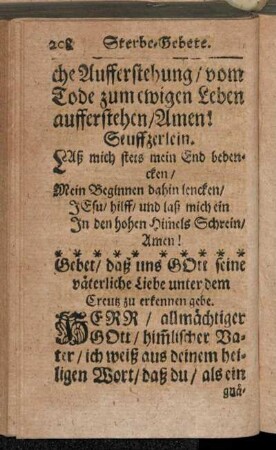 208 Sterbe-Gebete.
che Aufferstehung / vom
Tode zum ewigen Leben
aufferstehen / Amen!
Seuffzerlein.
LAß mich stets mein End beden-
cken /
Mein Beginnen dahin lencken /
JEsu / hilff / und laß mich ein
In den hohen Him̃els Schrein /
Amen!
* * * * * * * * * * * * * *
Gebet / daß uns GOtt seine
väterliche Liebe unter dem
Creutz zu erkennen gebe.
HERR / allmächtiger
GOtt / him̃lischer Va-
ter / ich weiß aus deinem hei-
ligen Wort / daß du / als ein
gnä-